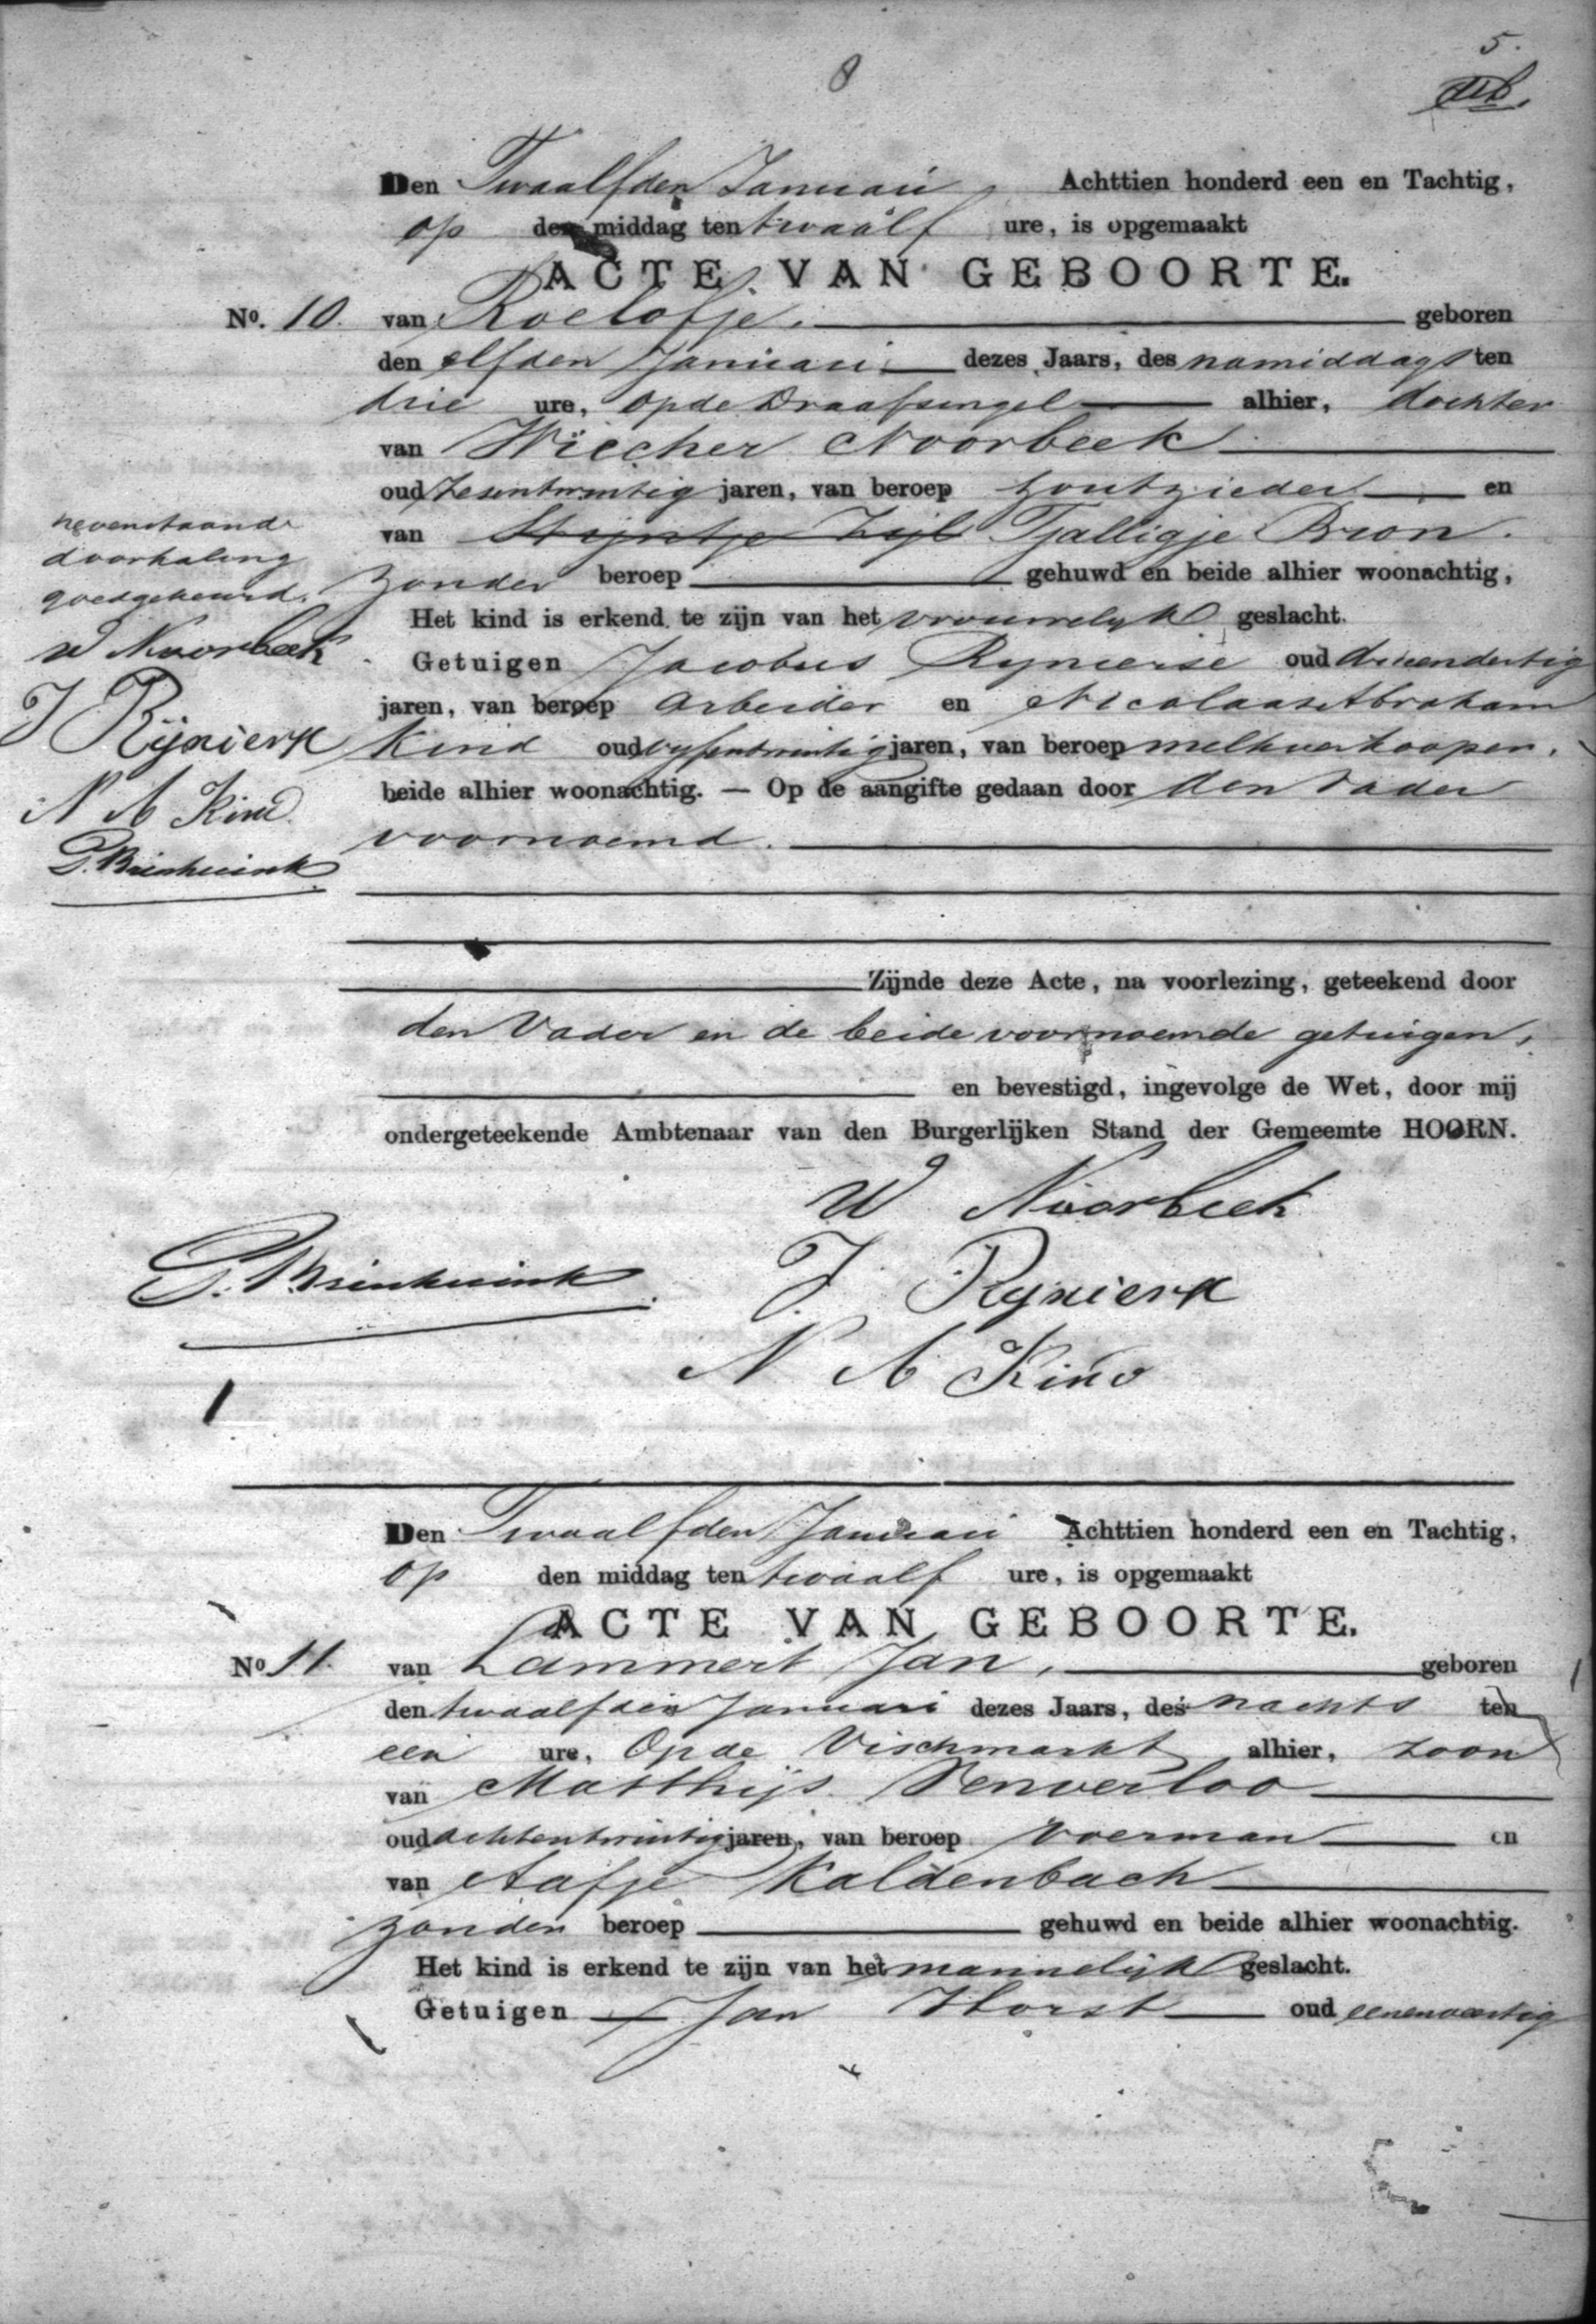 5.
8
Den Twaalfden Januari, Achttien honderd een en Tachtig,
op den middag ten twaalf ure, is opgemaakt
ACTE VAN GEBOORTE.
No. 10. van Roelofje. geboren
den elfden Januari dezes Jaars, des namiddags ten
drie ure, op de Draafsingel alhier, dochter
van Wiecher Noorbeek
oud zesentwintig jaren, van beroep zoutzieder en
van Stijntje Zijl Tjalligje Bron.
zonder beroep gehuwd en beide alhier woonachtig,
Het kind is erkend te zijn van het vrouwelijk geslacht.
Getuigen Jacobus Rynierse oud drieendertig
jaren, van beroep arbeider en Nicolaas Abraham
Kind oud vyfentwintig jaren, van beroep melkverkooper,
beide alhier woonachtig. — Op de aangifte gedaan door den Vader
voornoemd.
nevenstaande
doorhaling
goedgekeurd.
W Noorbeek
J Rijnierse
N A Kind
Zijnde deze Acte, na voorlezing, geteekend door
den Vader en de beide voornoemde getuigen,
en bevestigd, ingevolge de Wet, door mij
ondergeteekende Ambtenaar van den Burgerlijken Stand der Gemeemte HOORN.
W Noorbeek
J. Rynierse
N A Kind
Den Twaalfden Januari Achttien honderd een en Tachtig,
op den middag ten twaalf ure, is opgemaakt
ACTE VAN GEBOORTE.
No 11. van Lammert Jan, geboren
den twaalfden Januari dezes Jaars, des nachts ten
een ure, Op de Vischmarkt alhier, zoon
van Matthijs Venverloo
oud achtentwintig jaren, van beroep voerman en
van Aafje Kaldenbach
zonder beroep gehuwd en beide alhier woonachtig.
Het kind is erkend te zijn van het mannelijk geslacht.
Getuigen Jan Horst oud eenenveertig